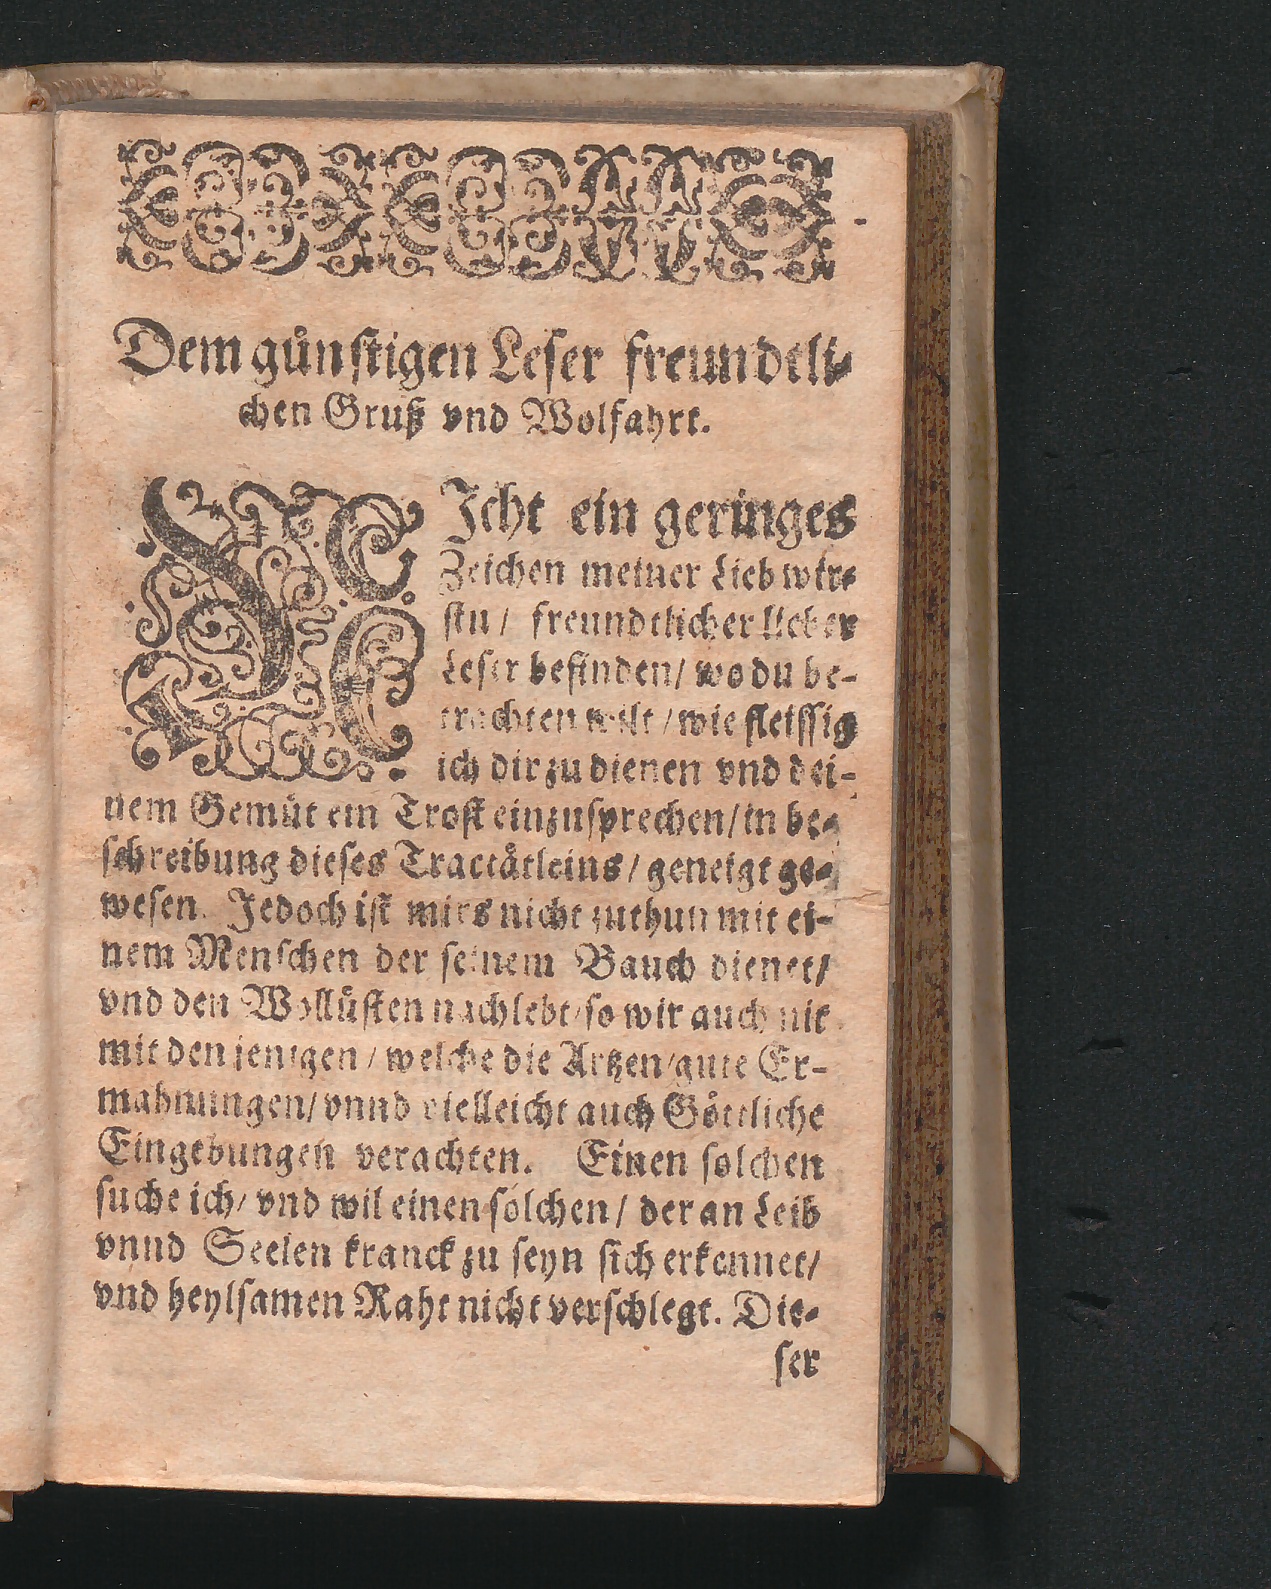 Dem günstigen Leser freundtli-
chen Gruß vnd Wolfahrt.
NIcht ein geringes
Zeichen meiner Lieb wir-
stu / freundtlicher lieber
Leser befinden / wo du be-
trachten wilt / wie fleissig
ich dir zu dienen vnd dei-
nem Gemüt ein Trost einzusprechen / in be-
schreibung dieses Tractätleins / geneigt ge-
wesen. Jedoch ist mirs nicht zuthun mit ei-
nem Menschen der seinem Bauch dienet /
vnd den Wollüsten nachlebt / so wir auch nit
mit den jenigen / welche die Artzen / gute Er-
mahnungen / vnnd vielleicht auch Göttliche
Eingebungen verachten. Einen solchen
suche ich / vnd wil einen solchen / der an Leib
vnnd Seelen kranck zu seyn sich erkennet /
vnd heylsamen Raht nicht verschlegt. Die-
ser